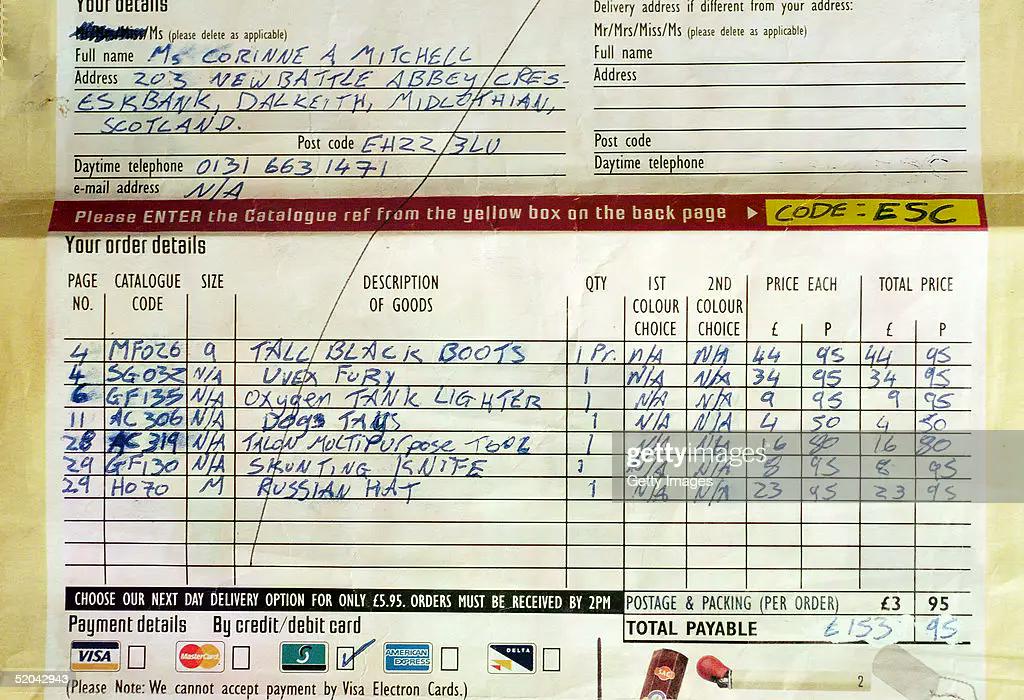 Your details
Delivery address if different from your address:
/Ms (please delete as applicable)
Mr/Mrs/Miss/Ms (please delete as applicable)
Full name Ms CORINNE A MITCHELL
Full name
Address 203 NEWBATTLE ABBEY CRES-
Address
ESKBANK, DALKEITH, MIDLOTHIAN,
SCOTLAND.
Post code EH22 3LU
Post code
Daytime telephone 0131 663 1471
Daytime telephone
e-mail address N/A
Please ENTER the Catalogue ref from the yellow box on the back page CODE: ESC
Your order details
PAGE NO. CATALOGUE CODE SIZE DESCRIPTION OF GOODS QTY 1ST COLOUR CHOICE 2ND COLOUR CHOICE PRICE EACH £ P TOTAL PRICE £ P
4 MF026 9 TALL BLACK BOOTS 1 Pr. N/A N/A 44 95 44 95
4 SG032 N/A UVEX FURY 1 N/A N/A 34 95 34 95
6 GF135 N/A OXYGEN TANK LIGHTER 1 N/A N/A 9 95 9 95
11 AC306 N/A DOGS TAGS 1 N/A N/A 4 50 4 50
28 AC319 N/A TALON MULTIPURPOSE TOOL 1 N/A N/A 16 80 16 80
29 GF130 N/A SKUNTING KNIFE 1 N/A N/A 8 95 8 95
29 H070 M RUSSIAN HAT 1 N/A N/A 23 95 23 95
gettyimages
Getty Images
CHOOSE OUR NEXT DAY DELIVERY OPTION FOR ONLY £5.95. ORDERS MUST BE RECEIVED BY 2PM
POSTAGE & PACKING (PER ORDER) £3 95
Payment details By credit/debit card
TOTAL PAYABLE £153 95
VISA MasterCard S AMERICAN EXPRESS DELTA
(Please Note: We cannot accept payment by Visa Electron Cards.)
2
52042943